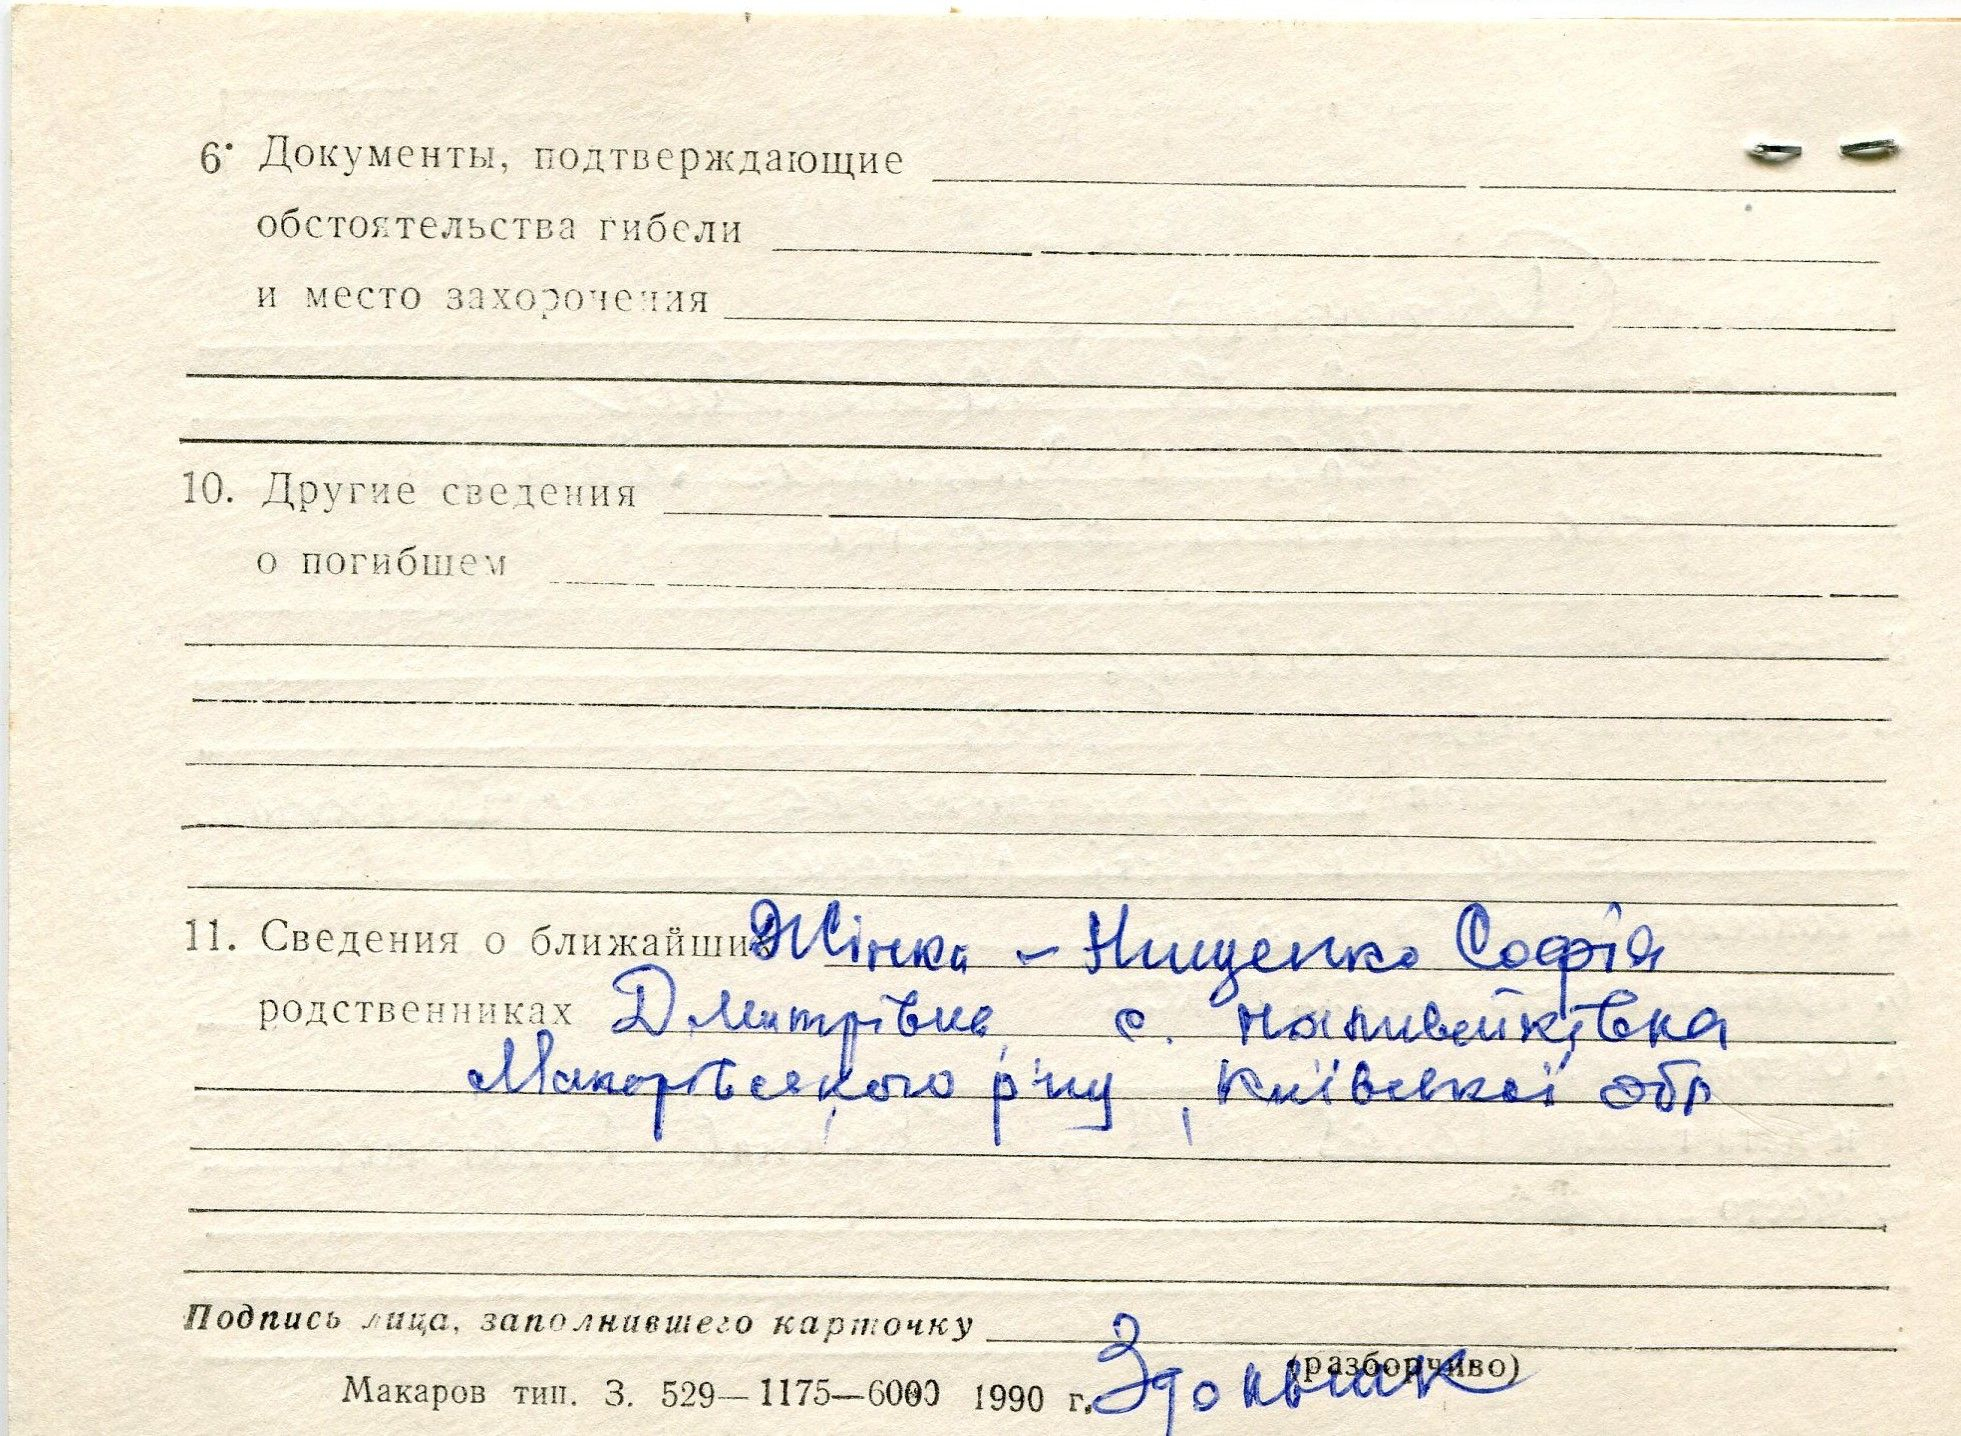 6. Документы, подтверждающие
обстоятельства гибели
и место захоронения
10. Другие сведения
о погибшем
11. Сведения о ближайших Жінка - Нищенко Софія
родственниках Дмитрівна с. Наливайківка
Макарівського р-ну, Київської обл
Подпись лица, заполнившего карточку
(разборчиво)
Макаров тип. З. 529—1175—6000 1990 г.